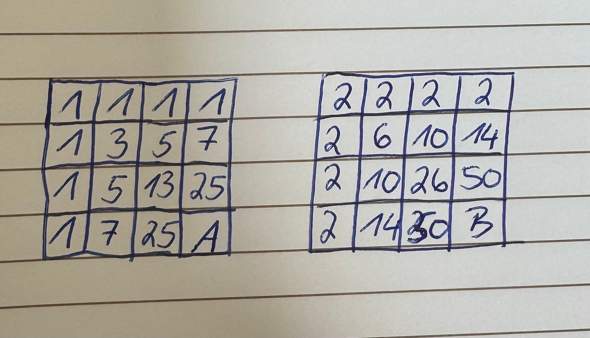 1 1 1 1 2 2 2 2
1 3 5 7 2 6 10 14
1 5 13 25 2 10 26 50
1 7 25 A 2 14 50 B